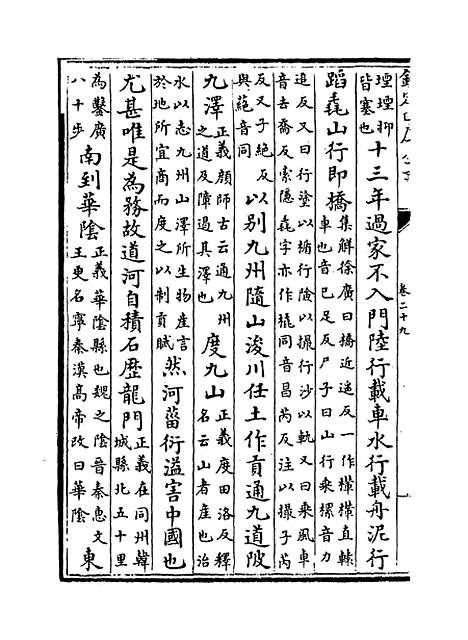 卷二十九
堙堙抑皆塞也十三年過家不入門陸行載車水行載舟泥行
蹈毳山行即橋集解徐廣曰橋近遥反一作檋檋直轅車也音己足反尸子曰山行乘樏音力
追反又曰行塗以楯行險以撮行沙以軌又曰乘風車音去喬反索隱毳字亦作橇同音昌芮反注以撮子芮
反又子絶反與蕝音同以别九州隨山浚川任土作貢通九道陂
九澤正義顔師古云通九州之道及障遏其澤也度九山正義度田洛反釋名云山者產也治
水以志九州山澤所生物產言於地所宜商而度之以制貢賦然河菑衍溢害中國也
尤甚唯是為務故道河自積石歴龍門正義在同州韓城縣北五十里
為鑿廣八十步南到華陰正義華陰縣也魏之陰晉秦惠文王更名寧秦漢高帝改曰華陰東